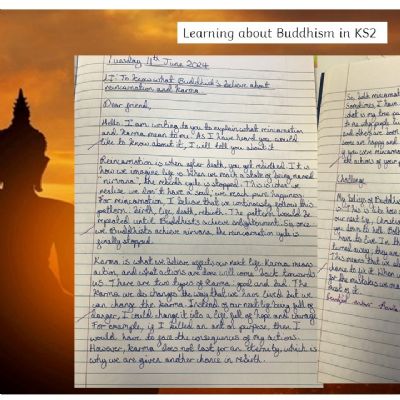 Learning about Buddhism in KS2
Tuesday 11th June 2024
LI: To know what Buddhists believe about
reincarnation and karma.
Dear friend,
Hello, I am writing to you to explain what reincarnation
and Karma mean to me. As I have heard you would
like to know about it, I will tell you about it.
Reincarnation is when after death, you get rebirthed. It is
how we imagine life is. When we reach a state of being named
"nirvana", the rebirth cycle is stopped. This is when we
realise we don't have a soul we reach pure happiness.
For reincarnation, I believe that we continuously follow this
pattern: birth, life, death, rebirth. The pattern would be
repeated until Buddhists achieve enlightenment. So, once
we Buddhists achieve nirvana, the reincarnation cycle is
finally stopped.
Karma is what we believe affects our next life. Karma means
action, and what actions are done will come back towards
us. There are two types of Karma: good and bad. The
Karma we do changes the way that we have lived but we
can change the karma. Instead of our next life being full of
danger, I could change it into a life full of hope and courage.
For example, if I killed an ant on purpose, then I
would have to face the consequences of my actions.
However, karma does not last for an eternity, which is
why we are given another chance in rebirth.
So, both reincarnation
Sometimes, I have
what is my true
and others are
some are happy and
if you were
the actions of your
Challenge
My belief of Buddhis
is this is life
our next life.
you down to hell.
have to live. In the
turned away, they are
This means that we
chance to fix it. When
for the mistakes we
most of it.